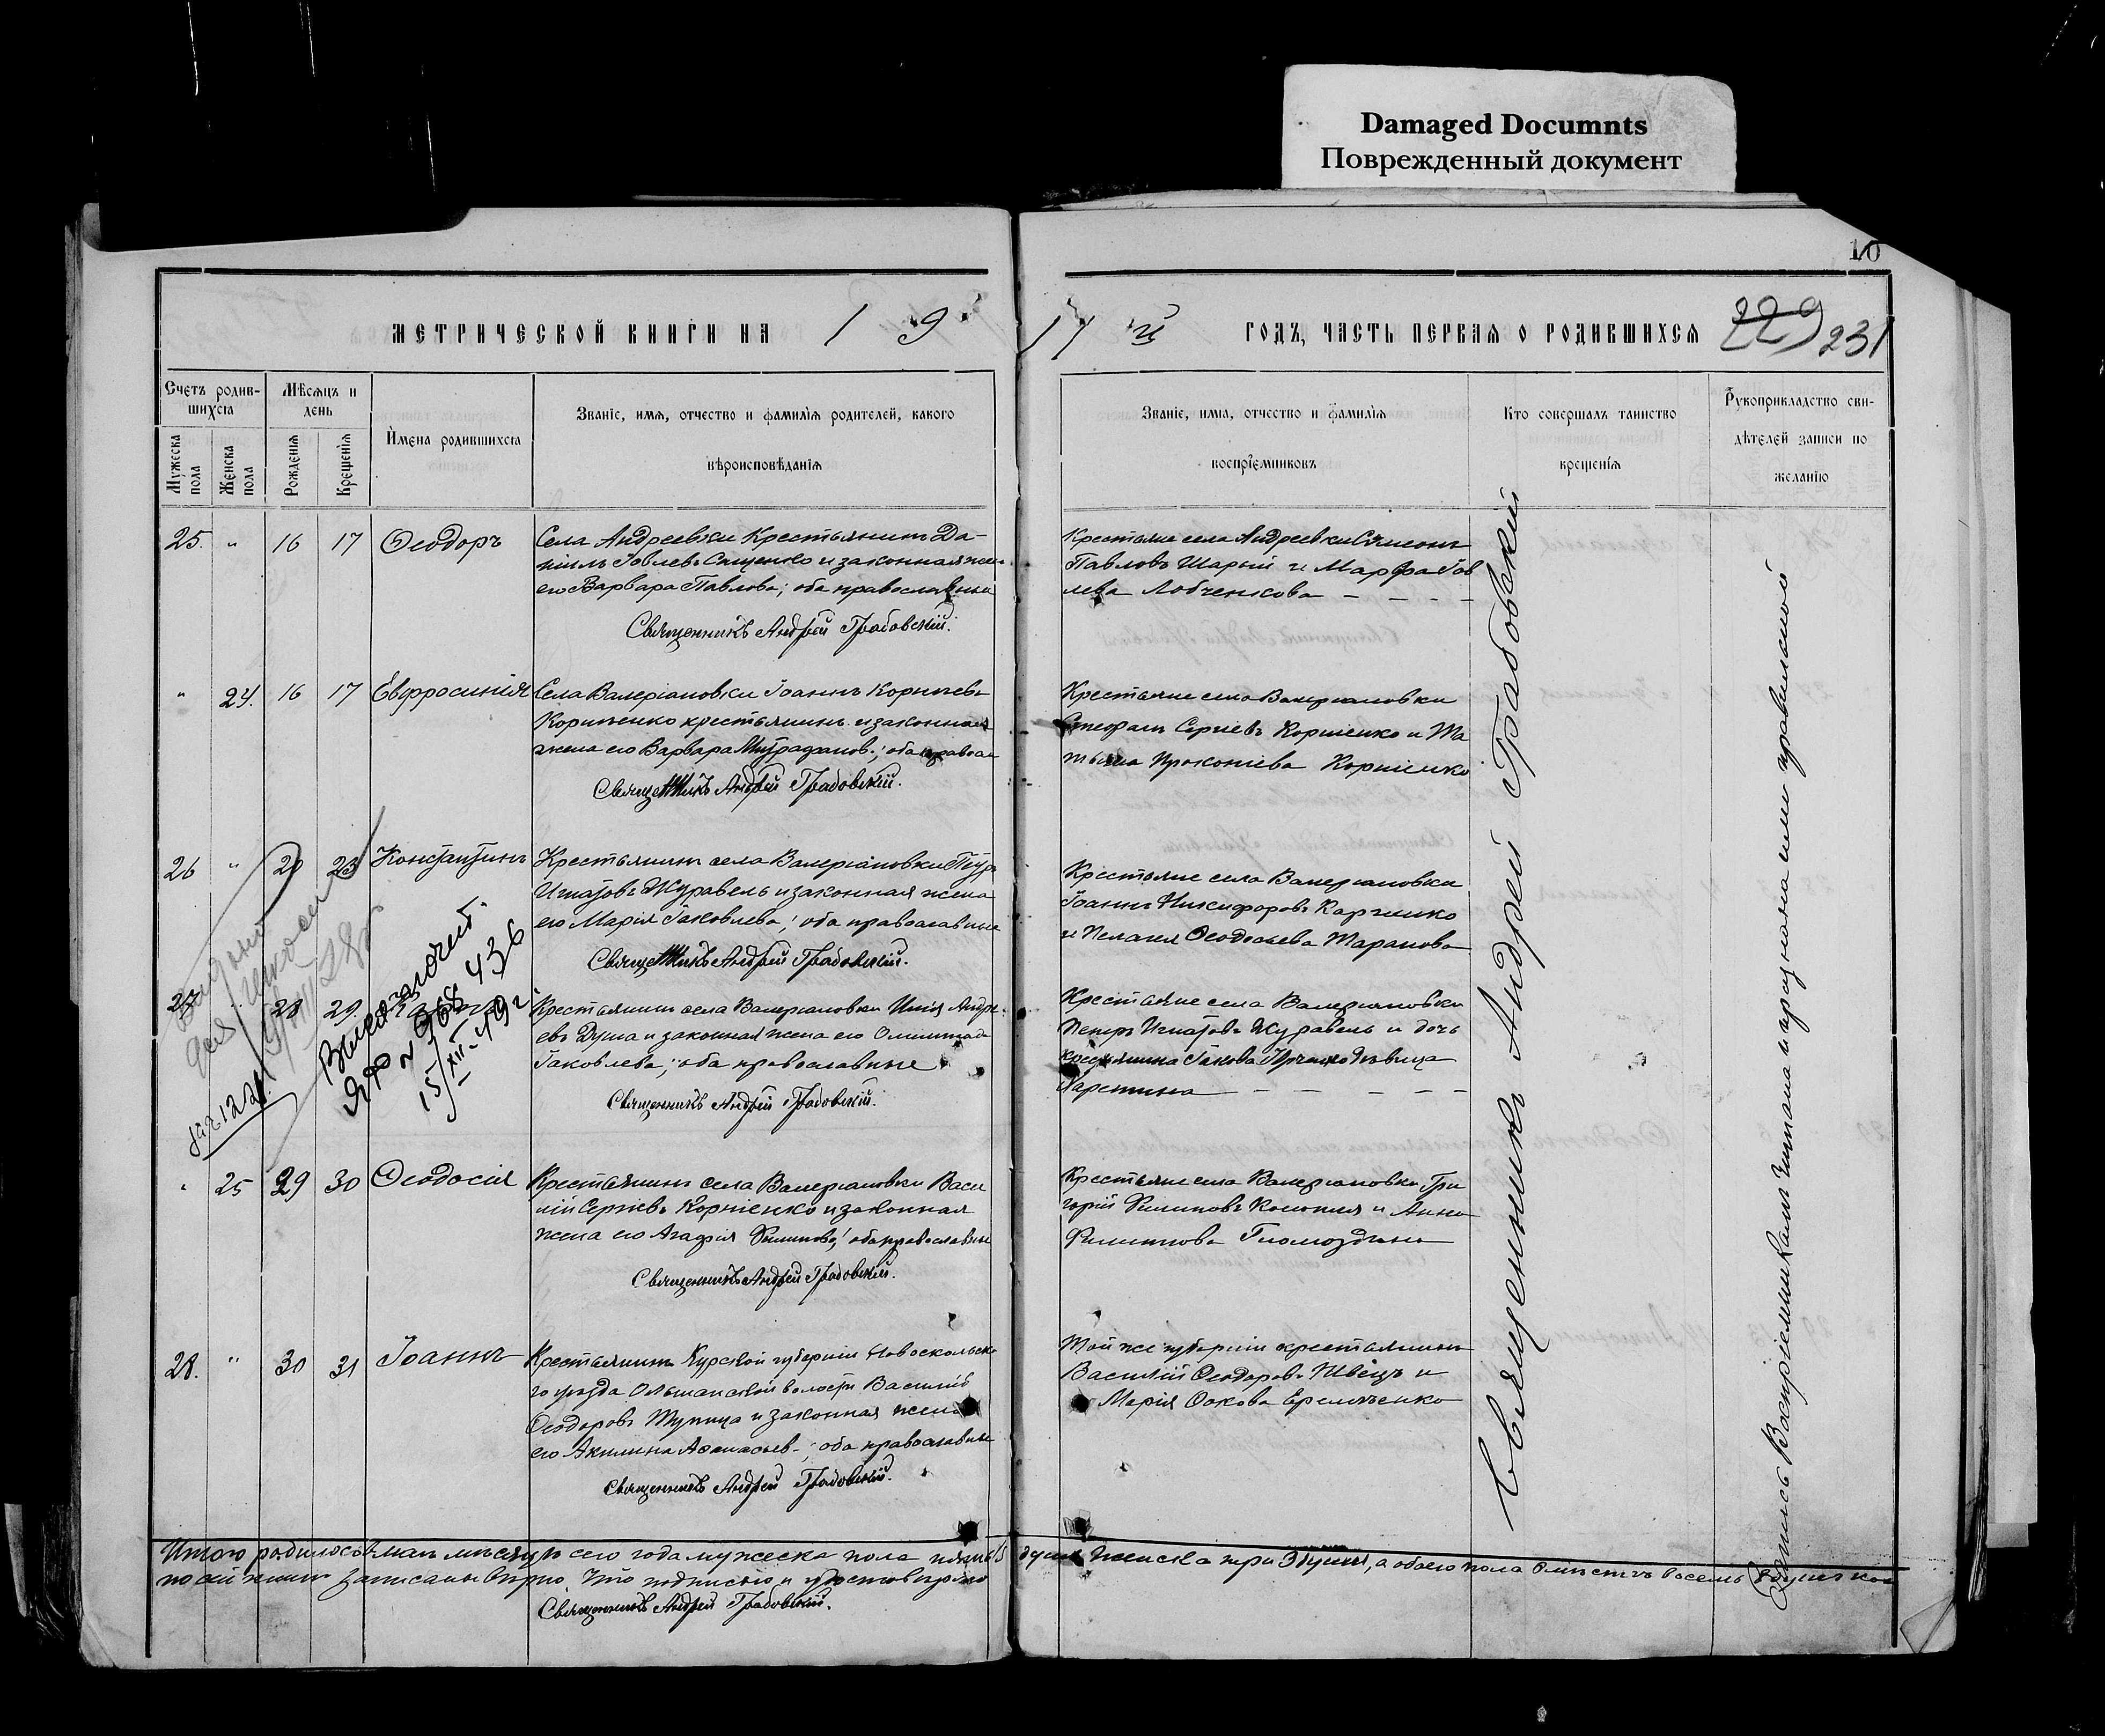 Damaged Documnts
Поврежденный документ
10
МЕТРИЧЕСКОЙ КНИГИ НА 19
14 й ГОДЪ, ЧАСТЬ ПЕРВАЯ О РОДИВШИХСЯ 229 231
Счетъ родив-
шихся
Мужеска пола
Женска пола
Мѣсяцъ и
день
Рожденія
Крещенія
Имена родившихся
Званіе, имя, отчество и фамилія родителей, какого
вѣроисповѣданія
Званіе, имя, отчество и фамилія
воспріемниковъ
Кто совершалъ таинство
крещенія
Рукоприкладство сви-
дѣтелей записи по
желанію
25. " 16 17 Ѳеодоръ
Села Андреевки Крестьянинъ Да-
ніилъ Іовлевъ Сащенко и законная жена
его Варвара Павлова; оба православные
Священникъ Андрей Грабовскій.
Крестьяне села Андреевки Симеонъ
Павловъ Шарый и Марфа Іов
лева Лобченкова
" 24. 16 17 Евфросинія
Села Валеріановки Іоаннъ Корніевъ
Корніенко крестьянинъ и законная
жена его Варвара Митрофанов.; оба правосл
Священникъ Андрей Грабовскій.
Крестьяне села Валеріановки
Стефанъ Сергіевъ Корніенко и Та
тьяна Прокопіева Корніенко
26 " 20 23 Константинъ
Крестьянинъ села Валеріановки Петръ
Игнатовъ Журавель и законная жена
его Марія Іаковлева; оба православные
Священникъ Андрей Грабовскій.
Крестьяне села Валеріановки
Іоаннъ Никифоровъ Карпенко
и Пелагея Ѳеодосьева Таранова
27 28 29.
Крестьянинъ села Валеріановки Илія Андре-
евъ Душа и законная жена его Олимпіада
Іаковлева; оба православные
Священникъ Андрей Грабовскій.
Крестьяне села Валеріановки
Петръ Игнатовъ Журавель и дочь
крестьянина Іакова дѣвица
Харитина
ЯР № 968436
15/XII-49 г.
" 25 29 30 Ѳеодосія
Крестьянинъ села Валеріановки Васи
лій Сергіевъ Корніенко и законная
жена его Агафія Филипова; оба православные
Священникъ Андрей Грабовскій.
Крестьяне села Валеріановки Гри
горій Филиповъ Конопля и Анна
Филиппова
28. " 30 31 Іоаннъ
Крестьянинъ Курской губерніи Новоскольска
го уѣзда Ольшанской волости Василій
Ѳеодоровъ Тупица и законная жена
его Акилина Аѳанасьев.; оба православные
Священникъ Андрей Грабовскій.
Той же губерніи крестьянинъ
Василій Ѳеодоровъ Швецъ и
Марія Еремѣенко
Священникъ Андрей Грабовскій
Запись Воспріемникамъ читана и признана ими правильной
Итого родилось въ маѣ мѣсяцѣ сего года мужеска пола пять 5 душъ женска три 3 души, а обоего пола вмѣстѣ восемь 8 душъ кои
по сей книгѣ записаны вѣрно. Что подписью и удостовѣряю
Священникъ Андрей Грабовскій.